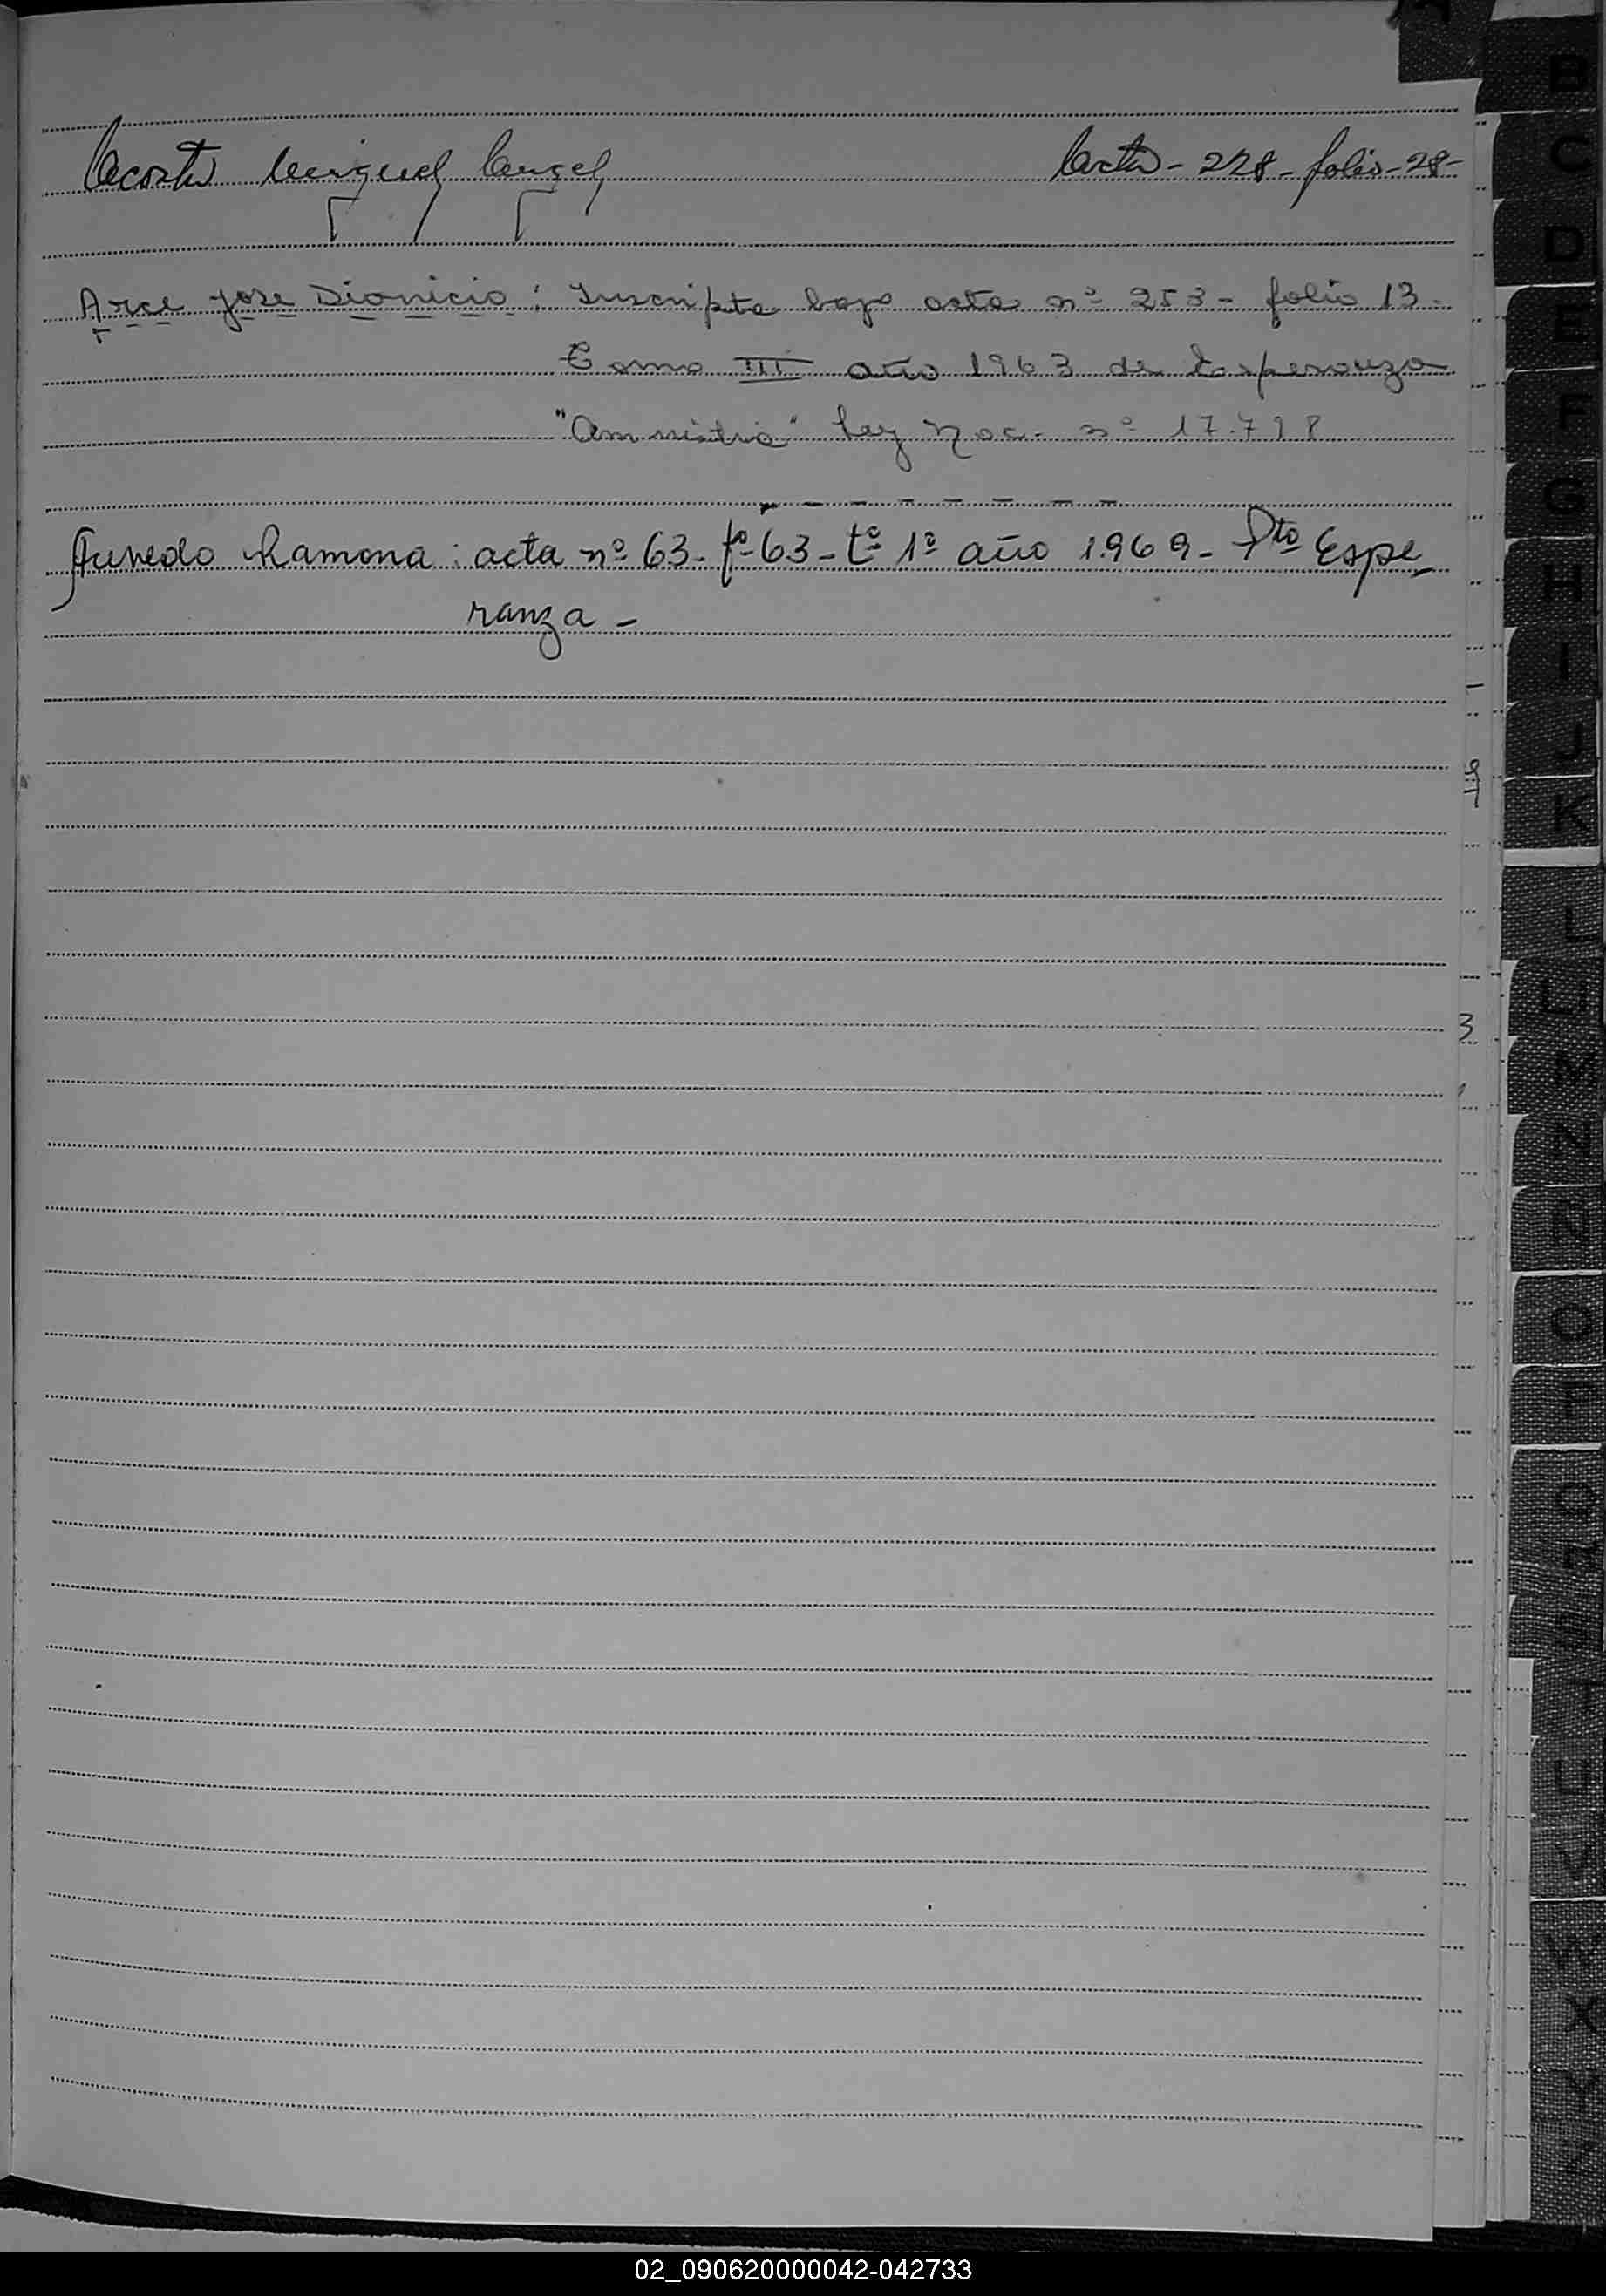 Acosta Miguel Angel Acta - 228 - folio - 28 -
Arce Jose Dionicio : Inscripta bajo acta nº 253 - folio 13 -
Tomo III año 1963 de Esperanza
"Amnistia" Ley Nac. nº 17.718
Acevedo Ramona : acta nº 63 - fº 63 - tº 1º año 1.969 - Pto Espe_
ranza -
B
C
D
E
F
G
H
I
J
K
L
LL
M
N
Ñ
O
P
Q
R
S
T
U
V
W
X
Y
Z
02_090620000042-042733